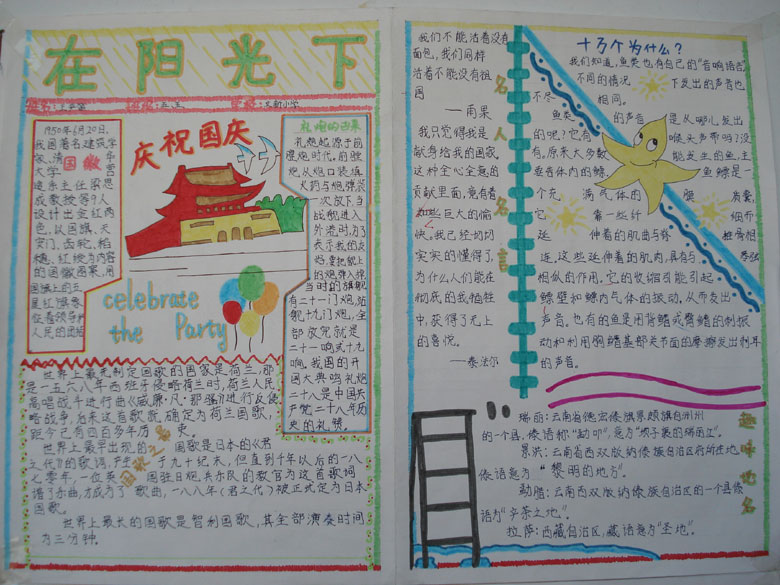 在阳光下
庆祝国庆
celebrate
the Party
1950年6月20日,
我国著名建筑学
家、清
国徽
大学
建系主任梁思
成教授等9人
设计出金红两
色,以国旗、天
安门、齿轮、稻
穗、红绫为内容
的国徽图案,用
国旗上的五
星红旗象
征着领导
人民的团结
礼炮的由来
礼炮起源于前
膛炮时代,前膛
炮从炮口装填
火药与炮弹装
一次放。当
战舰进入
外港时,为了
表示我的友
好,要把舰上
的炮弹入掉,
当时的旗舰
有二十一门炮,
舰十九门炮,全
部放完就是
二十一响或十九
响。我国的开
国大典鸣礼炮
二十八是中国共
产党二十八年历
史的礼赞
世界上最先制定国歌的国家是荷兰,那
是一五六八年西班牙侵略荷兰时,荷兰人民
高唱战斗进行曲《威廉·凡·那骚》进行反侵
略战争,后来这首歌就确定为荷兰国歌,
距今已有四百多年历史。
世界上最早出现的国歌是日本的《君
之代》的歌词,产生于九十纪末,但直到千年以后的一八
七零年,一位英国驻日炮兵乐队的教官为这首歌词
谱了乐曲,才成为了歌曲,一八八年《君之代》被正式定为日本
国歌。
世界上最长的国歌是智利国歌,其全部演奏时间
为三分钟。
国歌之名
我们不能活着没有
面包,我们同样
活着不能没有祖
国
——雨果
我只觉得我是
献身给我的国家。
这种全心全意的
贡献里面,竟有着
巨大的愉
快。我已经切切
实实的懂得了,
为什么人们能在
彻底的自我牺牲
中,获得了无上
的喜悦。
——泰法尔
名人名言
十万个为什么?
我们知道,鱼类也有自己的"音响语言"
不同的情况下发出的声音也
不尽相同。
鱼类的声音是从哪儿发出
的呢?它有喉头声带吗?没
有。原来大多数能发生的鱼,主
要靠体内的鳔。鱼鳔是一
个充满气体的膜质囊,
它靠一些纤细而
延伸着的肌曲与脊椎骨相
连,这些延伸着的肌肉,具有与琴弦
相似的作用。它的收缩可能引起
鳔壁和鳔内气体的振动,从而发出
声音。也有的鱼是用背鳍或臀鳍的刺振
动和利用胸鳍基部关节面的摩擦发出刺耳
的声音。
趣味地名
瑞丽:云南省德宏傣族景颇族自州州
的一个县,傣语称"勐卯",意为"坝子裹的瑞丽江"。
景洪:云南省西双版纳傣族自治区府所在地。
傣语意为"黎明的地方"。
勐腊:云南西双版纳傣族自治区的一个县,傣
语为"产茶之地"。
拉萨:西藏自治区,藏语意为"圣地"。